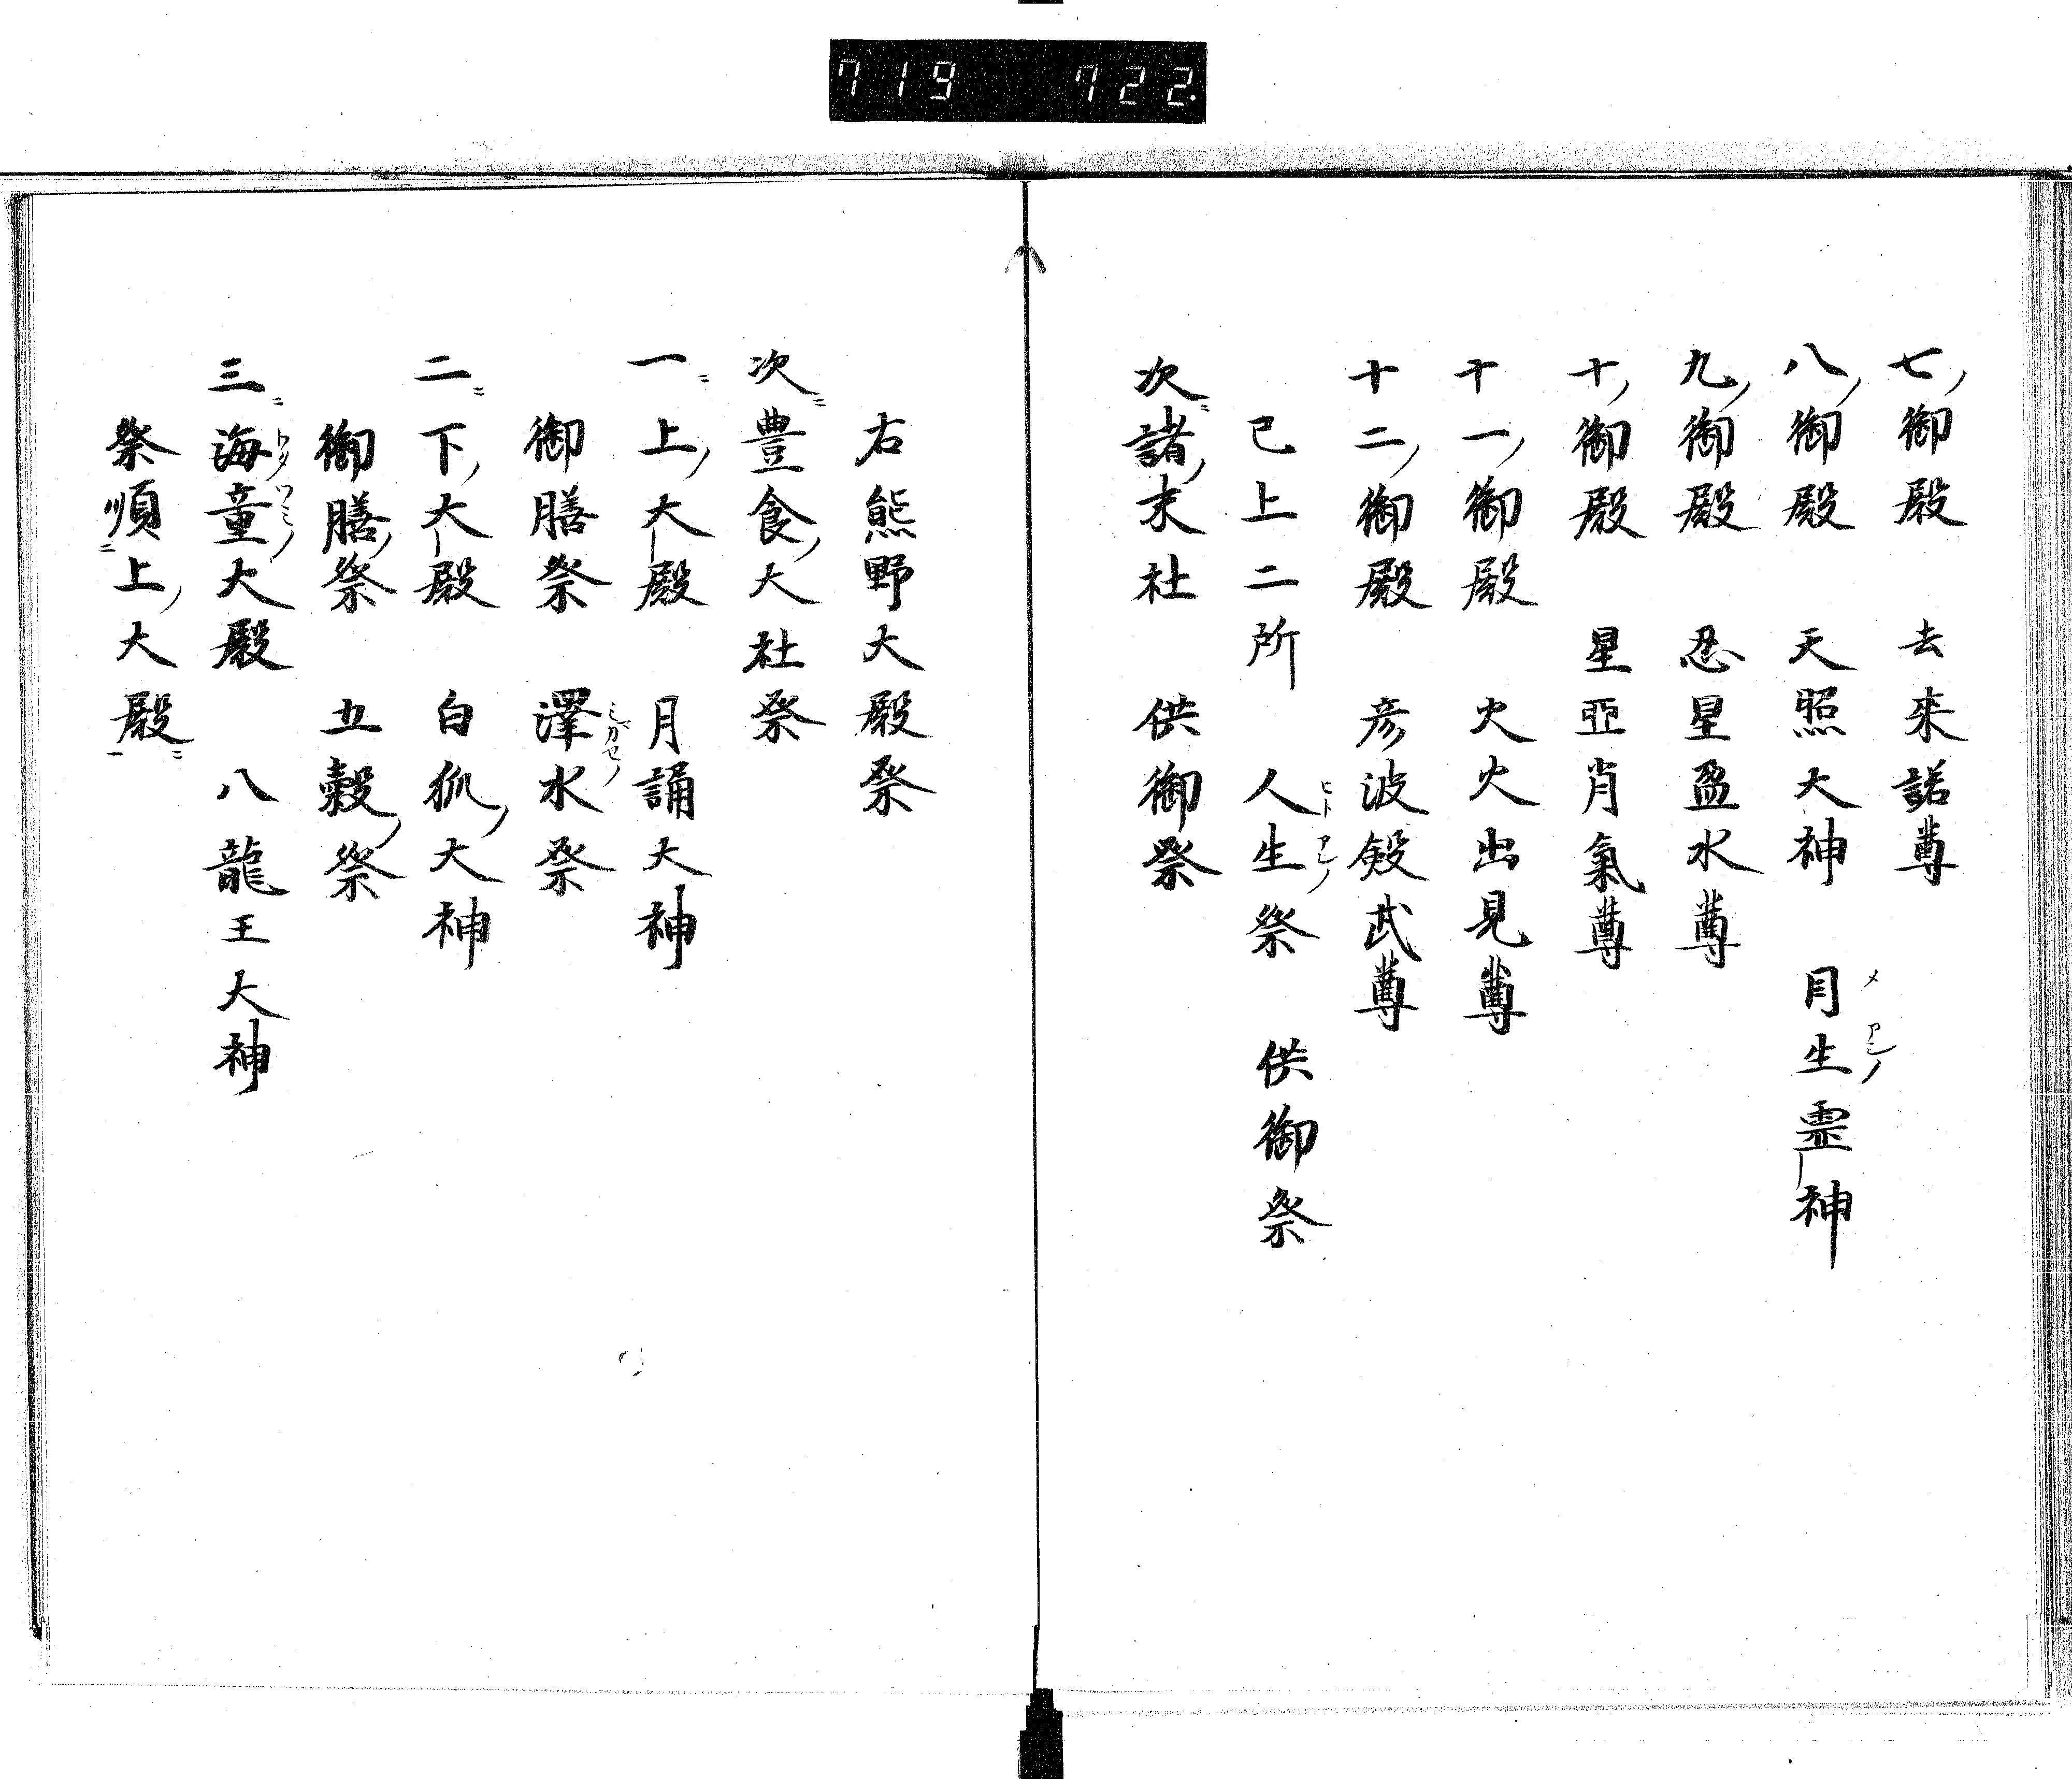 719 722.
七ノ御殿 去來諾尊
八ノ御殿 天照大神 月生霊神
九ノ御殿 忍星盈水尊
十ノ御殿 星亞肖氣尊
十一ノ御殿 火火出見尊
十二ノ御殿 彦波殿武尊
已上二所 人生祭 供御祭
次ニ諸ノ末社 供御祭
右熊野大殿祭
次ニ豊食ノ大社祭
一ニ上ノ大殿 月誦大神
御膳祭 澤水祭
二ニ下ノ大殿 白狐ノ大神
御膳ノ祭 五穀ノ祭
三ニ海童大殿 八龍王大神
祭順ニ上ノ大殿ニ